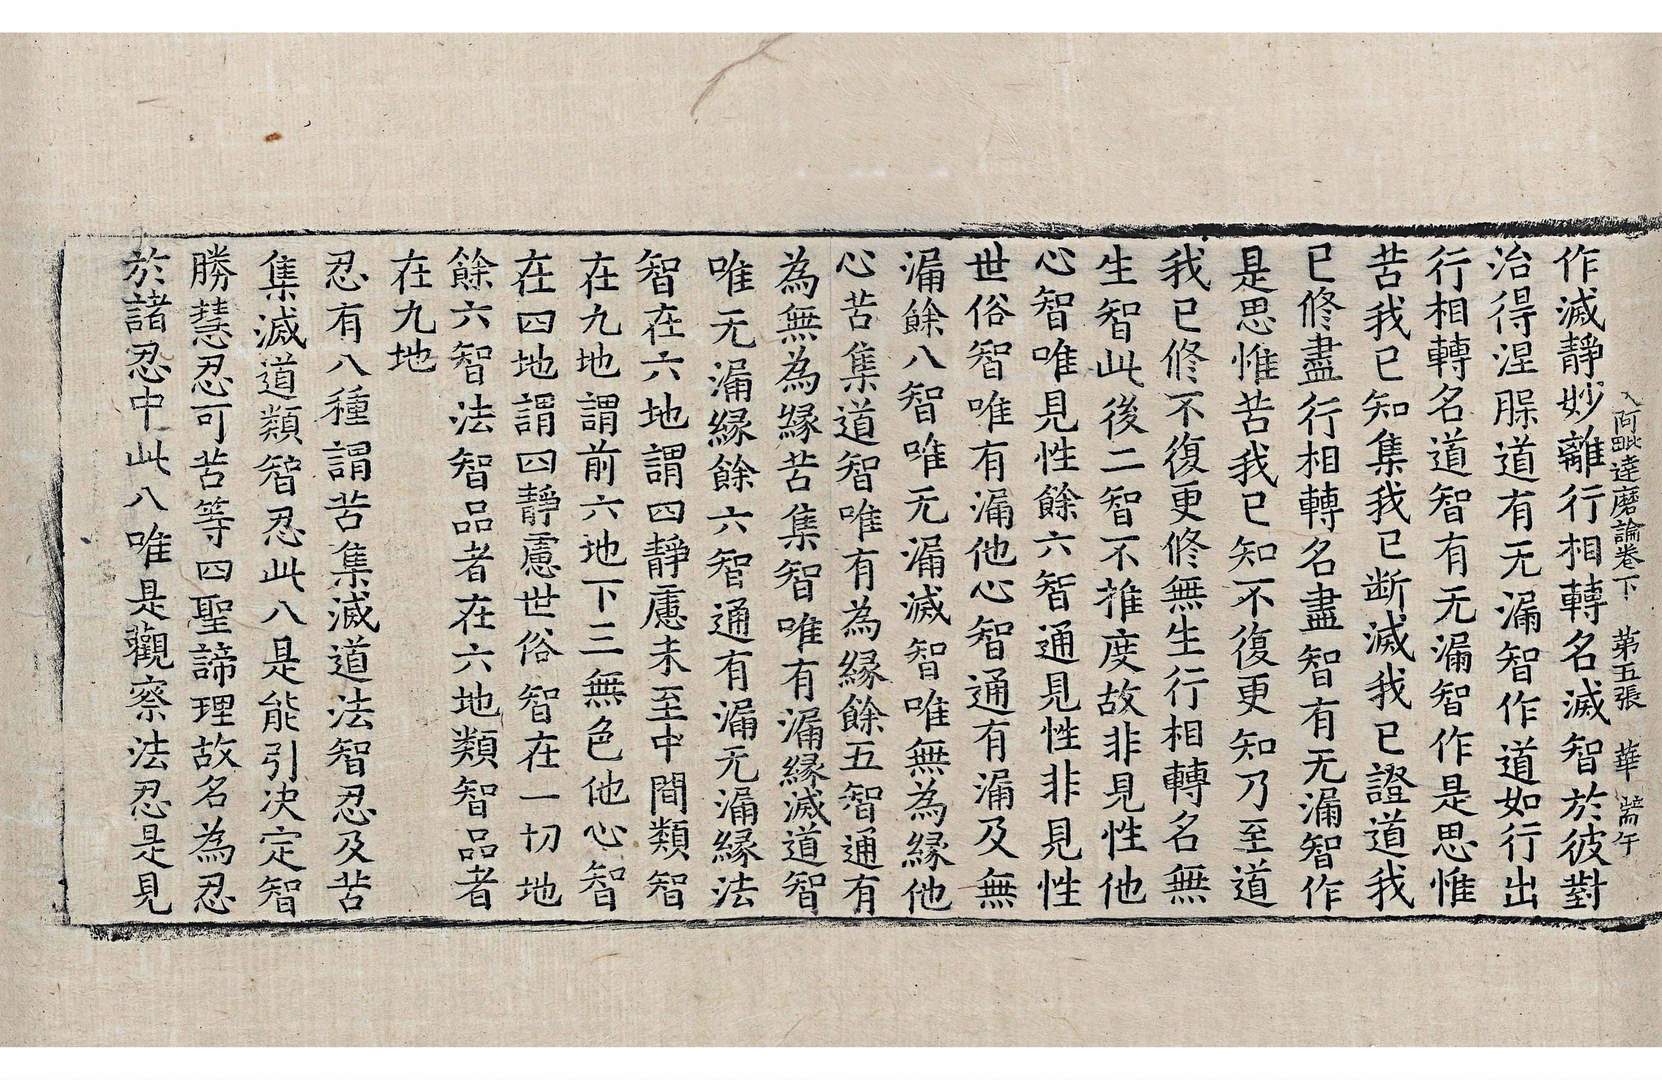 入阿毗達磨論卷下 第五張 華
作滅静妙離行相轉名滅智於彼對
治得涅脲道有无漏智作道如行出
行相轉名道智有无漏智作是思惟
苦我已知集我已断滅我已證道我
已修盡行相轉名盡智有无漏智作
是思惟苦我已知不復更知乃至道
我已修不復更修無生行相轉名無
生智此後二智不推度故非見性他
心智唯見性餘六智通見性非見性
世俗智唯有漏他心智通有漏及無
漏餘八智唯无漏滅智唯無為縁他
心苦集道智唯有為縁餘五智通有
為無為縁苦集智唯有漏縁滅道智
唯无漏縁餘六智通有漏无漏縁法
智在六地謂四靜慮未至中間類智
在九地謂前六地下三無色他心智
在四地謂四靜慮世俗智在一切地
餘六智法智品者在六地類智品者
在九地
忍有八種謂苦集滅道法智忍及苦
集滅道類智忍此八是能引决定智
勝慧忍可苦等四聖諦理故名為忍
於諸忍中此八唯是觀察法忍是見